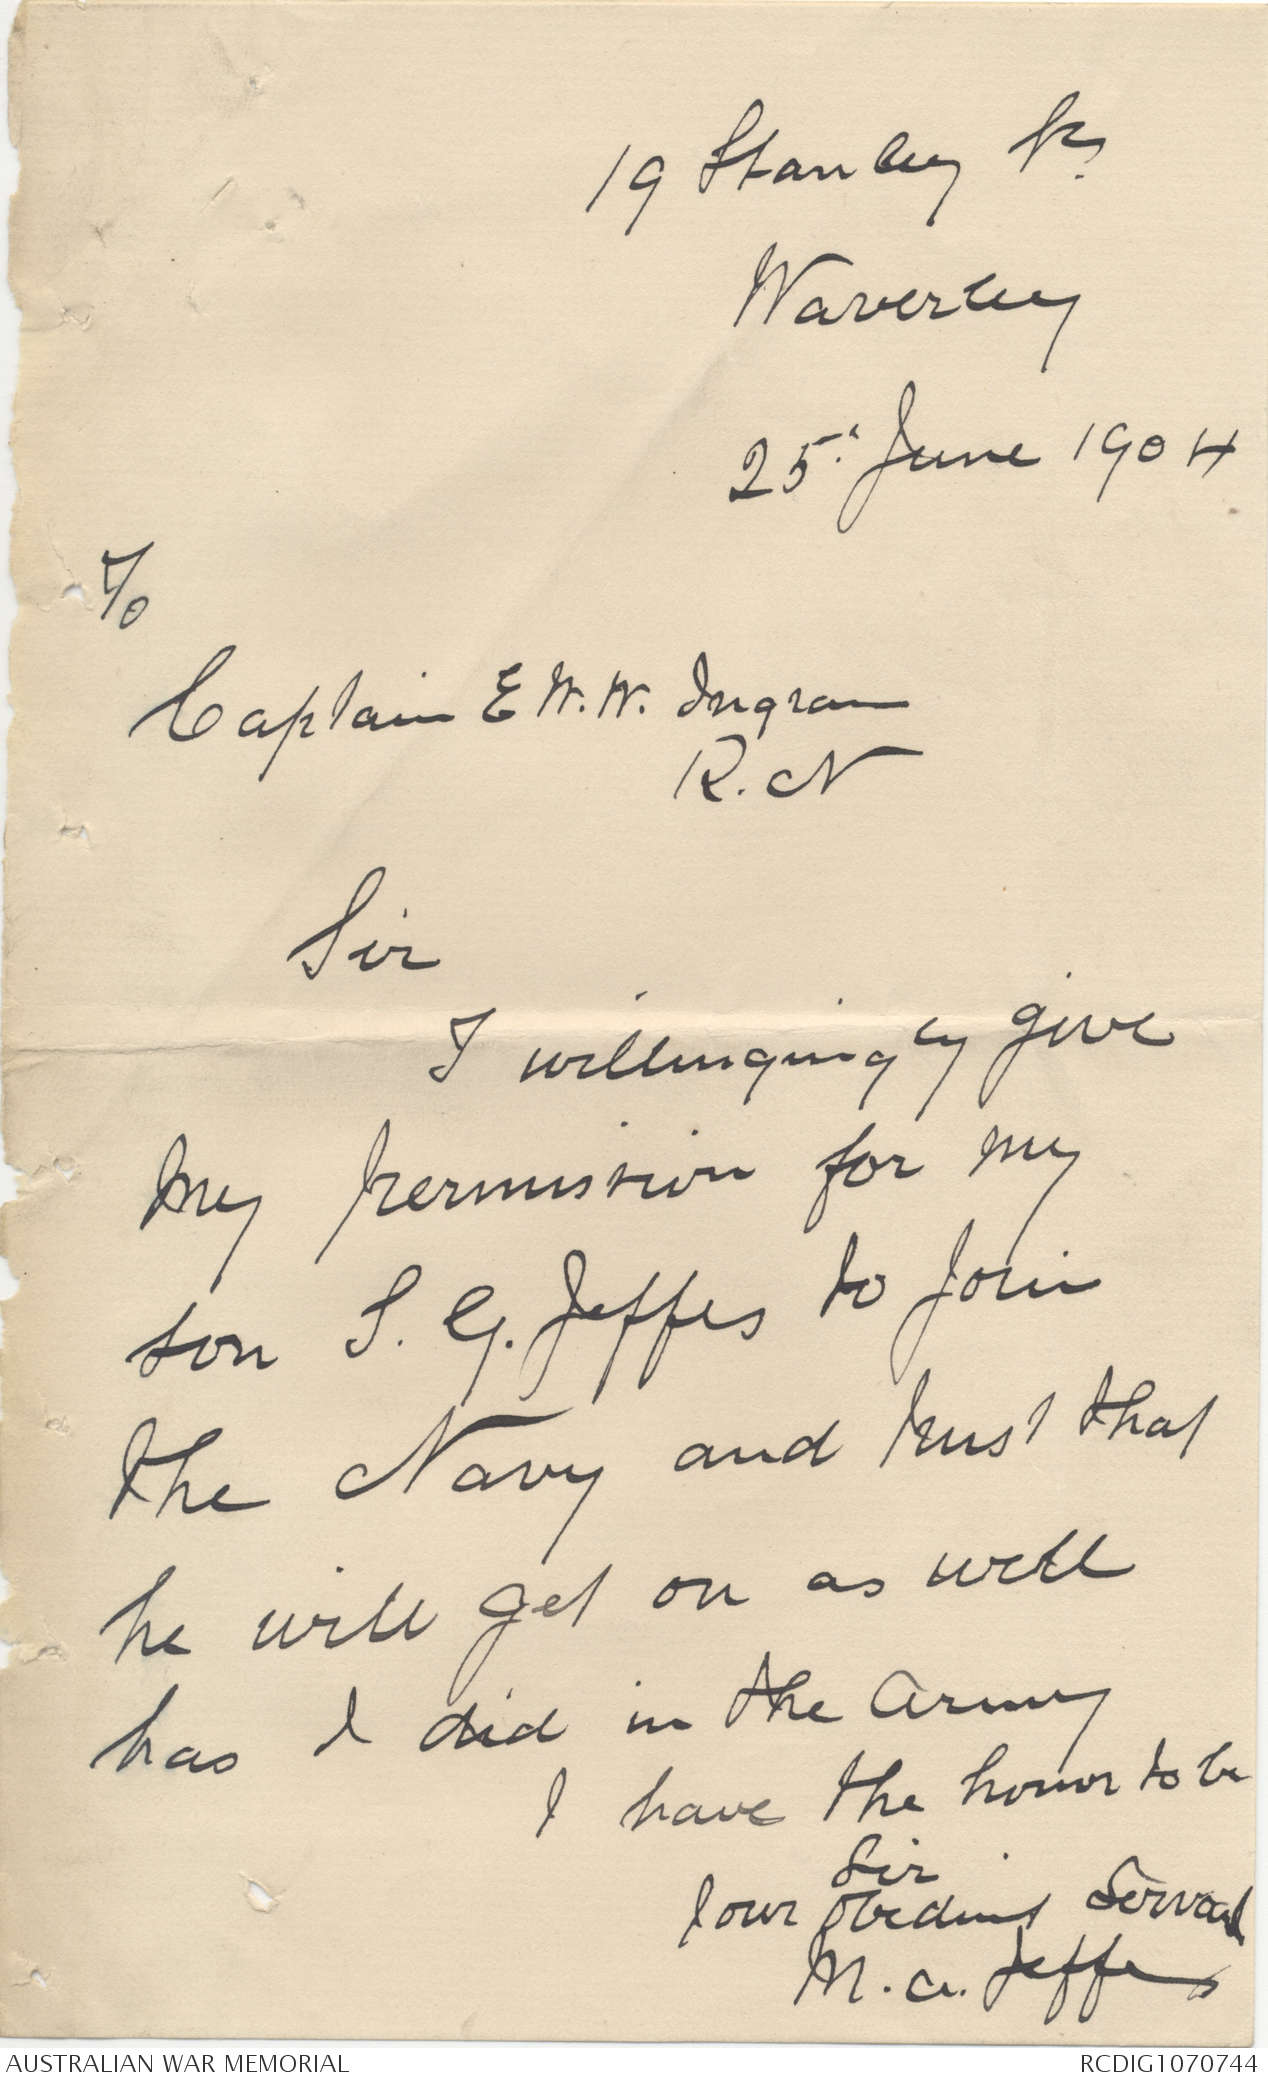 19 Stanley St
Waverley
25 June 1904
T/o
Captain E W. W. Ingram
R. N
Sir
I willingingly give
my permission for my
son S. G. Jeffes to join
the Navy and trust that
he will get on as well
has I did in the army
I have the honor to be
Sir
Your obedient Servant
M. A. Jeffes
AUSTRALIAN WAR MEMORIAL
RCDIG1070744